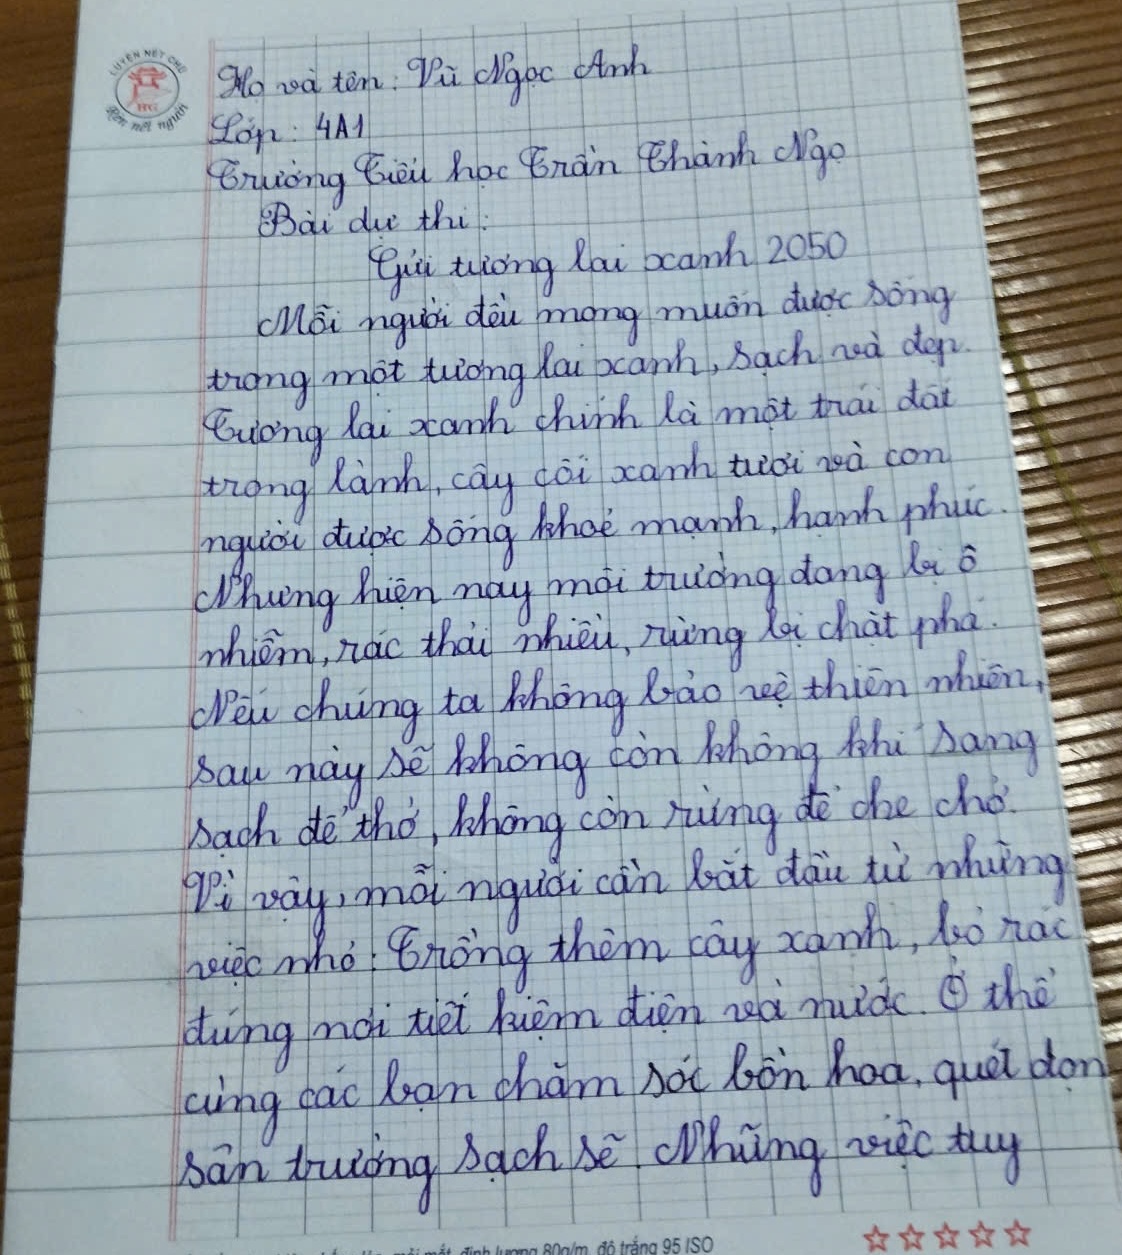 LUYỆN NÉT CHỮ
Rèn nết người
Họ và tên: Vũ Ngọc Anh
Lớp: 4A1
Trường Tiểu học Trần Thành Ngọ
Bài dự thi:
Gửi tương lai xanh 2050
Mỗi người đều mong muốn được sống
trong một tương lai xanh, sạch và đẹp.
Tương lai xanh chính là một trái đất
trong lành, cây cối xanh tươi và con
người được sống khoẻ mạnh, hạnh phúc.
Nhưng hiện nay môi trường đang bị ô
nhiễm, rác thải nhiều, rừng bị chặt phá.
Nếu chúng ta không bảo vệ thiên nhiên,
sau này sẽ không còn không khí sang
sạch để thở, không còn rừng để che chở.
Vì vậy, mỗi người cần bắt đầu từ những
việc nhỏ: Trồng thêm cây xanh, bỏ rác
đúng nơi tiết kiệm điện và nước. thể
cùng các bạn chăm sóc bồn hoa, quét dọn
sân trường sạch sẽ. Những việc tuy
định lượng 80g/m, độ trắng 95 ISO